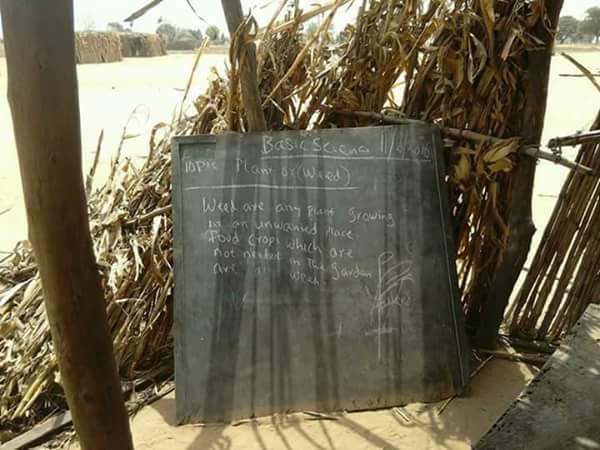 Basic Science 11/2
Topic Plant or (Weed)
Weed are any plant growing
in an unwanted Place
Food Crops which are
not needed in The garden
are weed